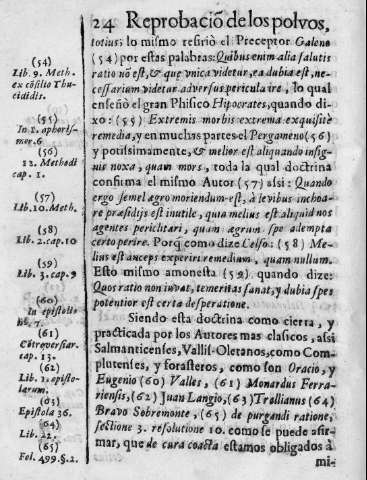 24 Reprobaciõ de los polvos,
totius; lo mismo refiriò el Preceptor Galeno
(54) por estas palabras: Quibus enim alia salutis
ratio nõ est, & quę vnica videtur, ea dubia est, ne-
cessarium videtur adversus periculũ ire, lo qual
enseñò el gran Phisico Hipocrates, quando di-
xo: (55) Extremis morbis extrema exquisitè
remedia, y en muchas partes el Pergameno (56)
y potisimamente, & melior est aliquando insig-
uis noxa, quam mors, toda la qual doctrina
confirma el mismo Autor (57) assi: Quando
ergo semel ægro moriendum est, à levibus inchoa-
re præsidijs est inutile, quia melius est aliquid nos
agentes periclitari, quam ægrum spe adempta
certo perire. Porq̃ como dize Celso: (58) Me-
lius est anceps experiri remedium, quam nullum.
Esto mismo amonesta (59) quando dize:
Quos ratio non iuvat, temeritas sanat, y dubia spes
potentior est certa desperatione.
Siendo esta doctrina como cierta, y
practicada por los Autores mas clasicos, assi
Salmanticenses, Vallis-Oletanos, como Com-
plutenses, y forasteros, como son Oracio, y
Eugenio (60) Valles, (61) Monardus Ferra-
riensis, (62) Juan Langio, (63) Trallianus (64)
Bravo Sobremonte, (65) de purgandi ratione,
sectione 3. resolutione 10. como se puede afir-
mar, que de cura coacta estamos obligados à
mi-
(54)
Lib. 9. Meth.
ex cõsilio Thu-
cididis.
(55)
In 1. aphoris-
mor. 6
(56)
12. Methodi
cap. 1.
(57)
Lib. 10. Meth.
(58)
Lib. 2. cap. 10
(59)
Lib. 3. cap. 9
(60)
In epistolio
nũ. 7.
(61)
Cõtroversiar.
cap. 13.
(62)
Lib. 1. episto-
larum.
(63)
Epistola 36.
(64)
Lib. 22.
(65)
Fol. 499. §. 2.